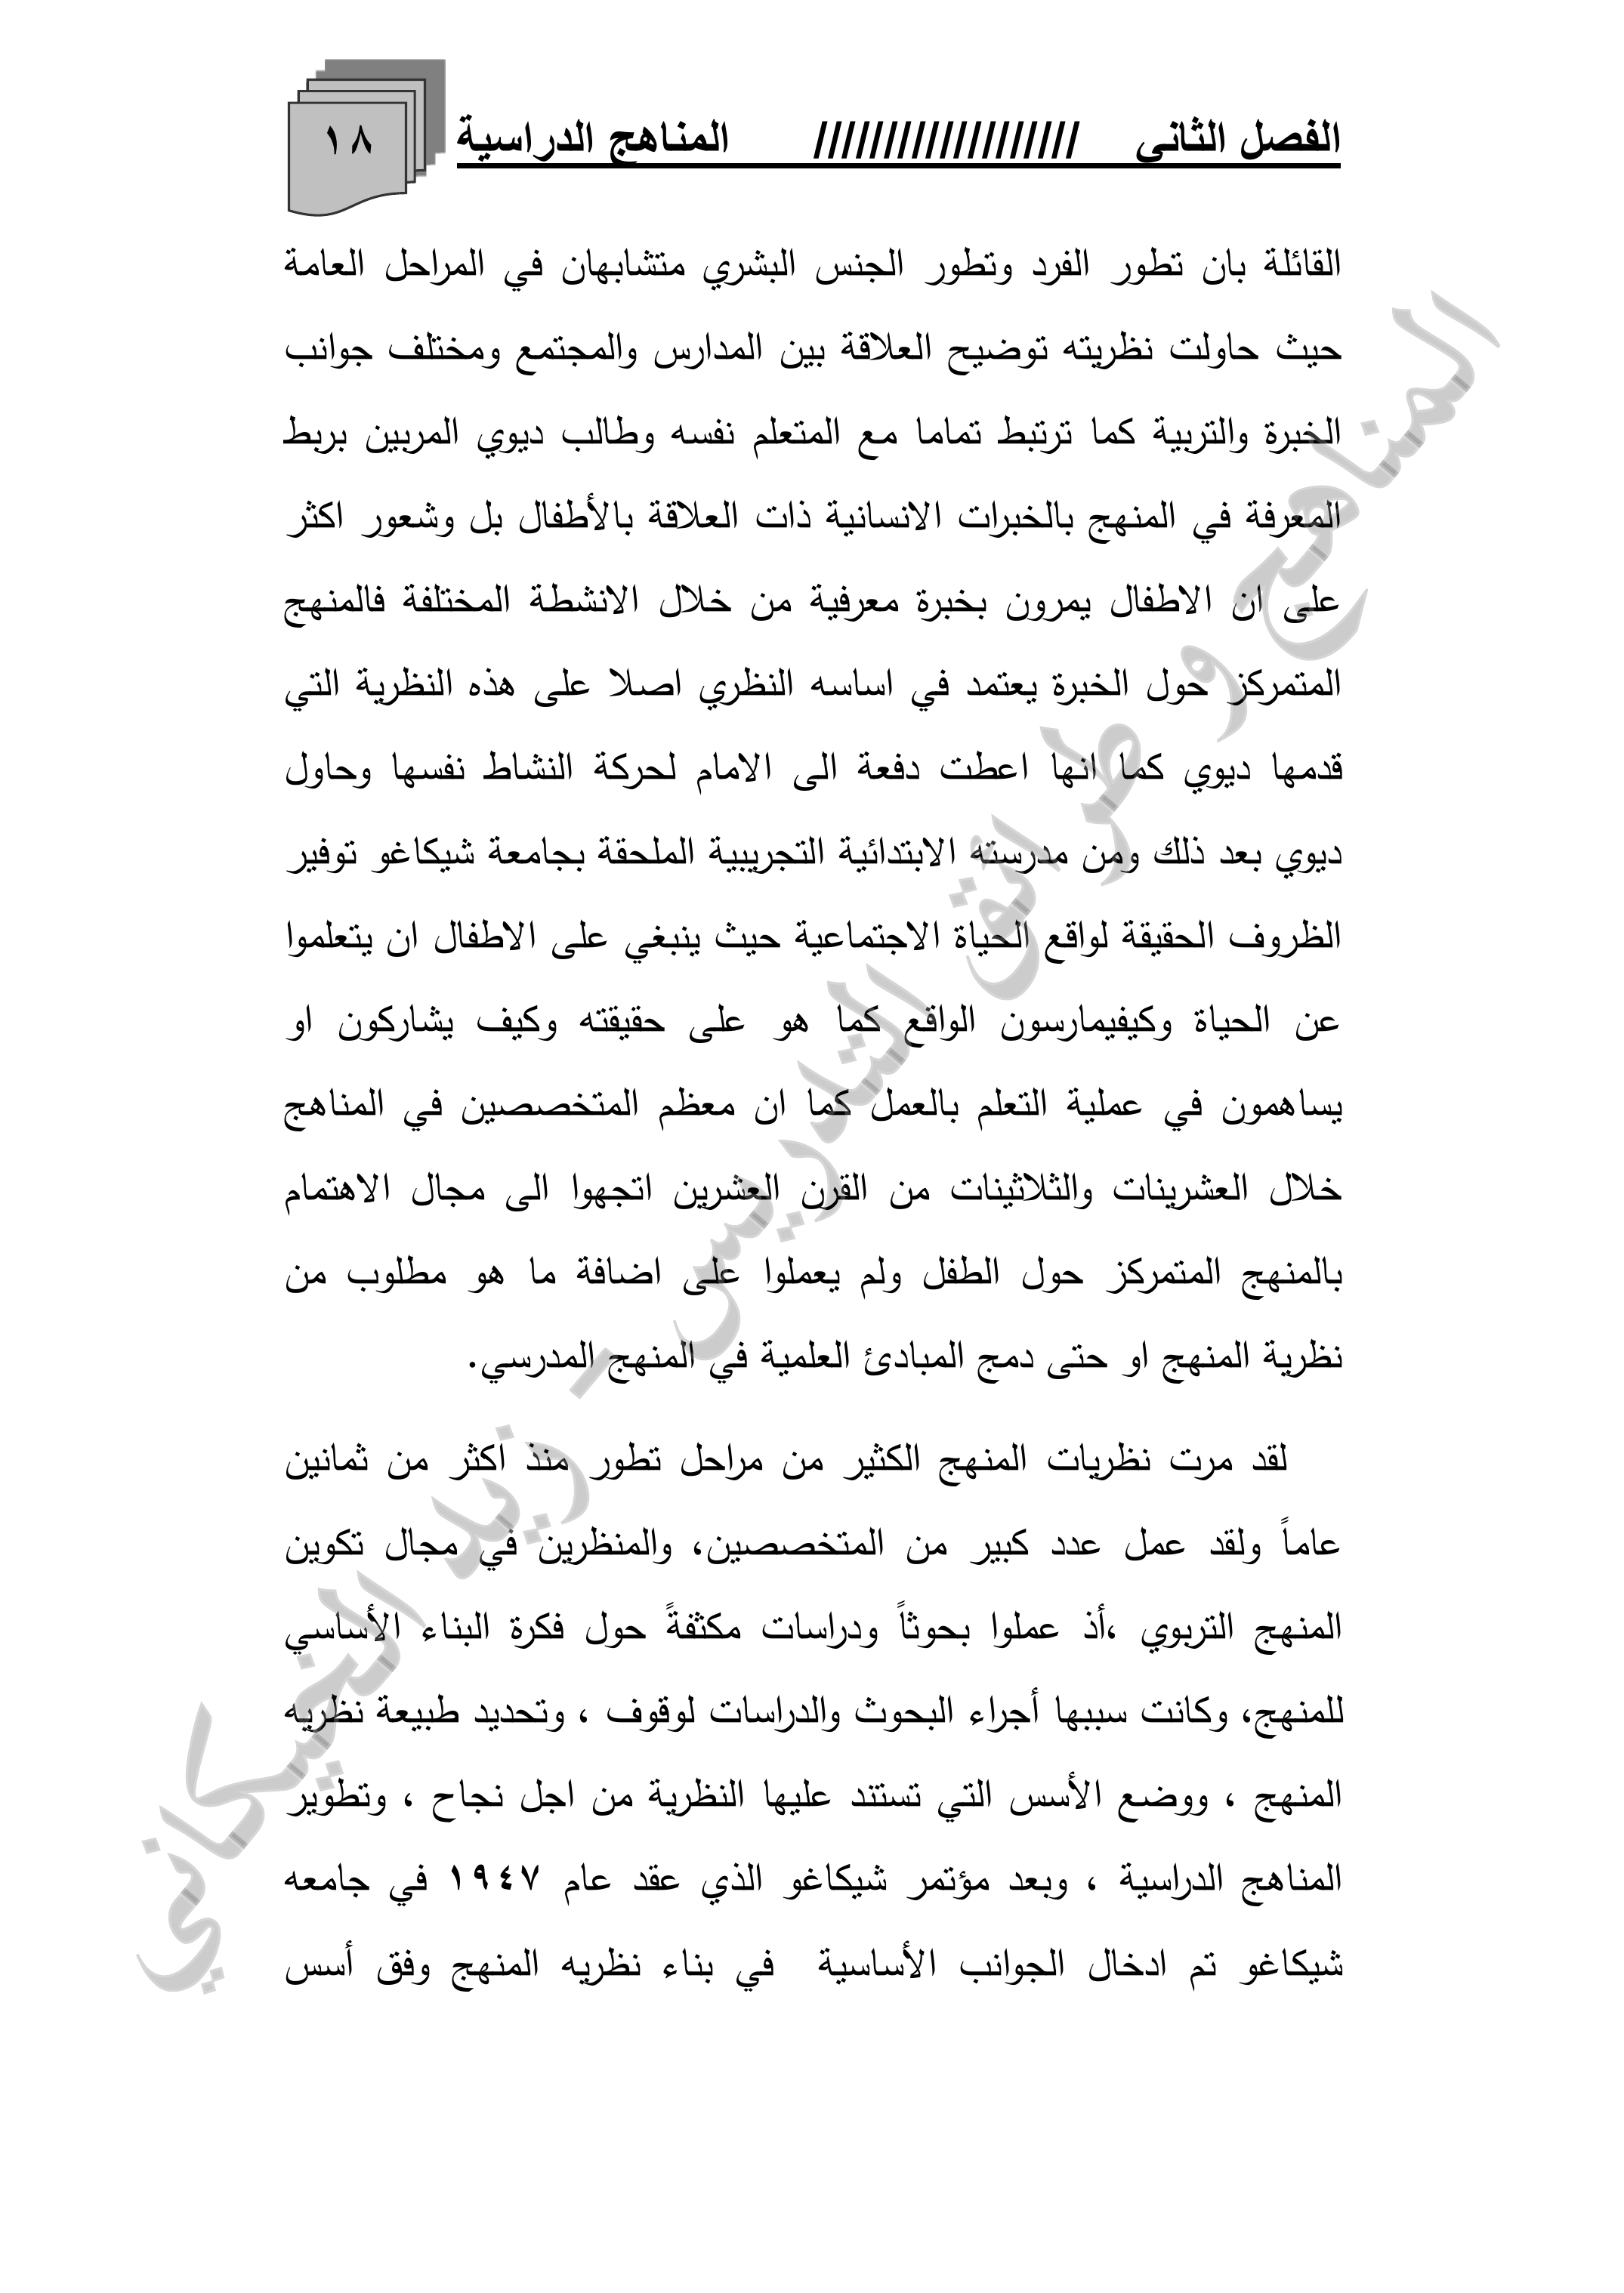 الفصل الثاني /////////////////// المناهج الدراسية ١٨
القائلة بان تطور الفرد وتطور الجنس البشري متشابهان في المراحل العامة
حيث حاولت نظريته توضيح العلاقة بين المدارس والمجتمع ومختلف جوانب
الخبرة والتربية كما ترتبط تماما مع المتعلم نفسه وطالب ديوي المربين بربط
المعرفة في المنهج بالخبرات الانسانية ذات العلاقة بالأطفال بل وشعور اكثر
على ان الاطفال يمرون بخبرة معرفية من خلال الانشطة المختلفة فالمنهج
المتمركز حول الخبرة يعتمد في اساسه النظري اصلا على هذه النظرية التي
قدمها ديوي كما انها اعطت دفعة الى الامام لحركة النشاط نفسها وحاول
ديوي بعد ذلك ومن مدرسته الابتدائية التجريبية الملحقة بجامعة شيكاغو توفير
الظروف الحقيقة لواقع الحياة الاجتماعية حيث ينبغي على الاطفال ان يتعلموا
عن الحياة وكيفيمارسون الواقع كما هو على حقيقته وكيف يشاركون او
يساهمون في عملية التعلم بالعمل كما ان معظم المتخصصين في المناهج
خلال العشرينات والثلاثينات من القرن العشرين اتجهوا الى مجال الاهتمام
بالمنهج المتمركز حول الطفل ولم يعملوا على اضافة ما هو مطلوب من
نظرية المنهج او حتى دمج المبادئ العلمية في المنهج المدرسي.
لقد مرت نظريات المنهج الكثير من مراحل تطور منذ اكثر من ثمانين
عاماً ولقد عمل عدد كبير من المتخصصين، والمنظرين في مجال تكوين
المنهج التربوي ،أذ عملوا بحوثاً ودراسات مكثفةً حول فكرة البناء الأساسي
للمنهج، وكانت سببها أجراء البحوث والدراسات لوقوف ، وتحديد طبيعة نظريه
المنهج ، ووضع الأسس التي تستند عليها النظرية من اجل نجاح ، وتطوير
المناهج الدراسية ، وبعد مؤتمر شيكاغو الذي عقد عام ١٩٤٧ في جامعه
شيكاغو تم ادخال الجوانب الأساسية في بناء نظريه المنهج وفق أسس
المناهج و طرائق التدريس - زيد الخيكاني